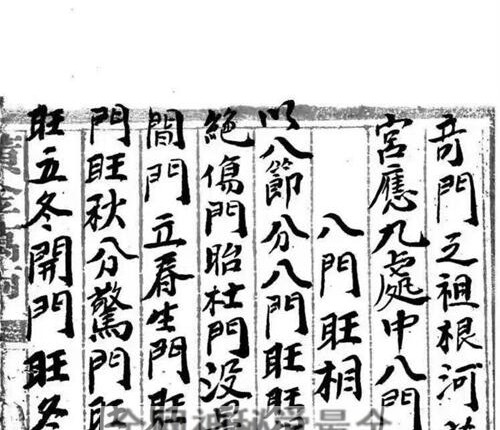 奇門之祖根河
宮應九處中八門
八門旺相
以八節分八門旺
絕傷門胎杜門没
間門立春生門旺
門旺秋分驚門旺
旺立冬開門旺冬